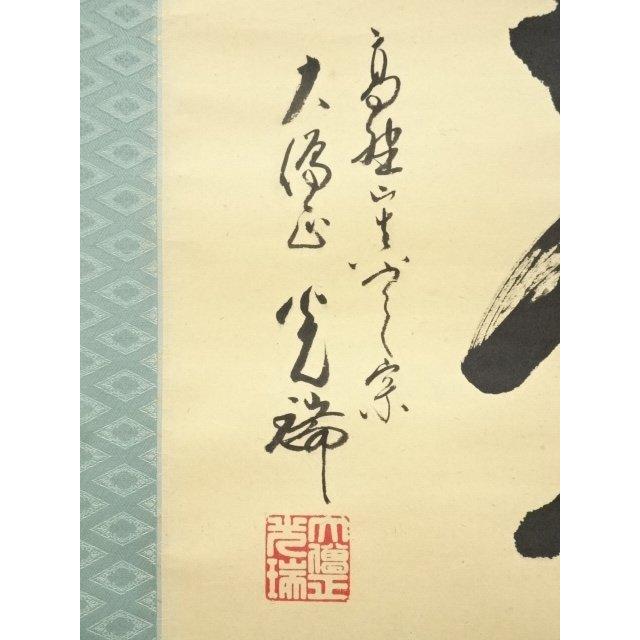 高野山真言宗
大僧正 光瑞
大僧正
光瑞